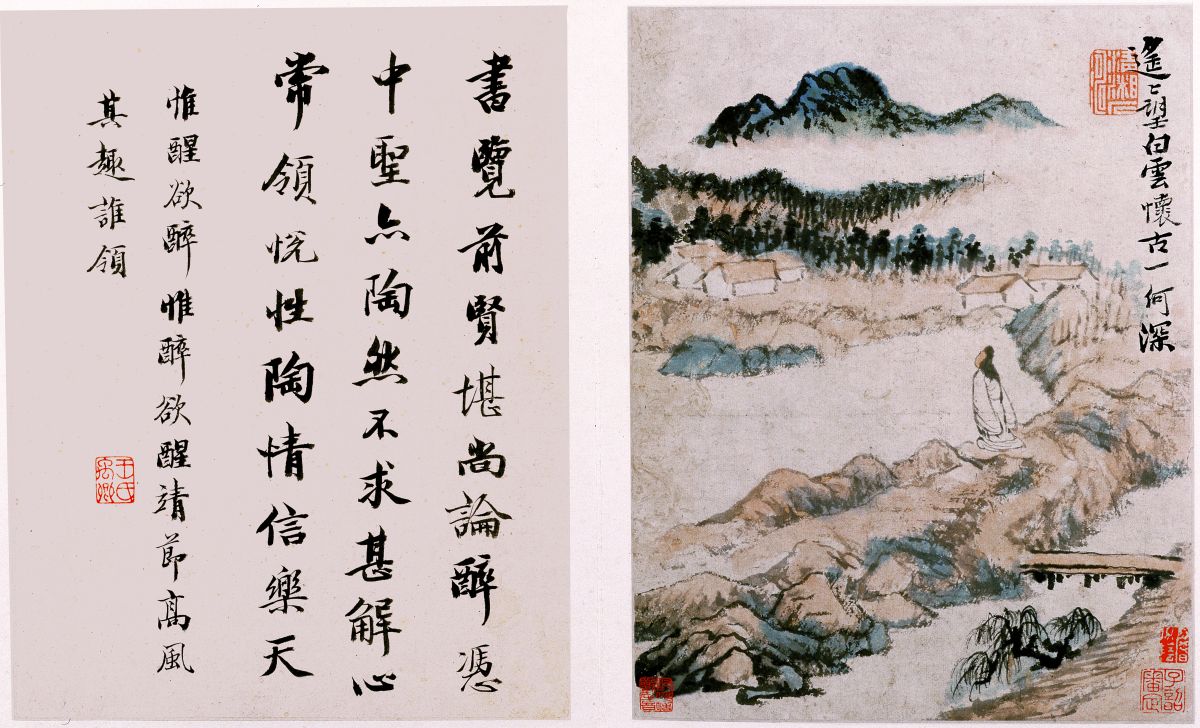 遙〻望白雲懷古一何深
書覽前賢堪尚論醉憑
中聖亦陶然不求甚解心
常領悅性陶情信樂天
惟醒欲醉惟醉欲醒靖節高風
其趣誰領
王氏禹卿